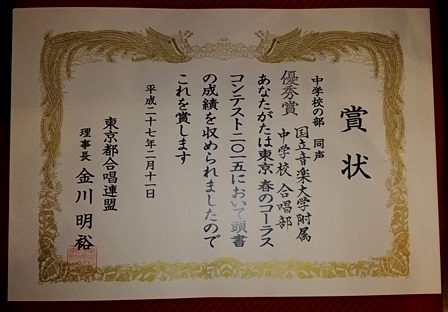 賞状
中学校の部 同声
優秀賞
国立音楽大学附属
中学校 合唱部
あなたがたは東京 春のコーラス
コンテスト二〇一五において頭書
の成績を収められましたので
これを賞します
平成二十七年二月十一日
東京都合唱連盟
理事長 金川明裕